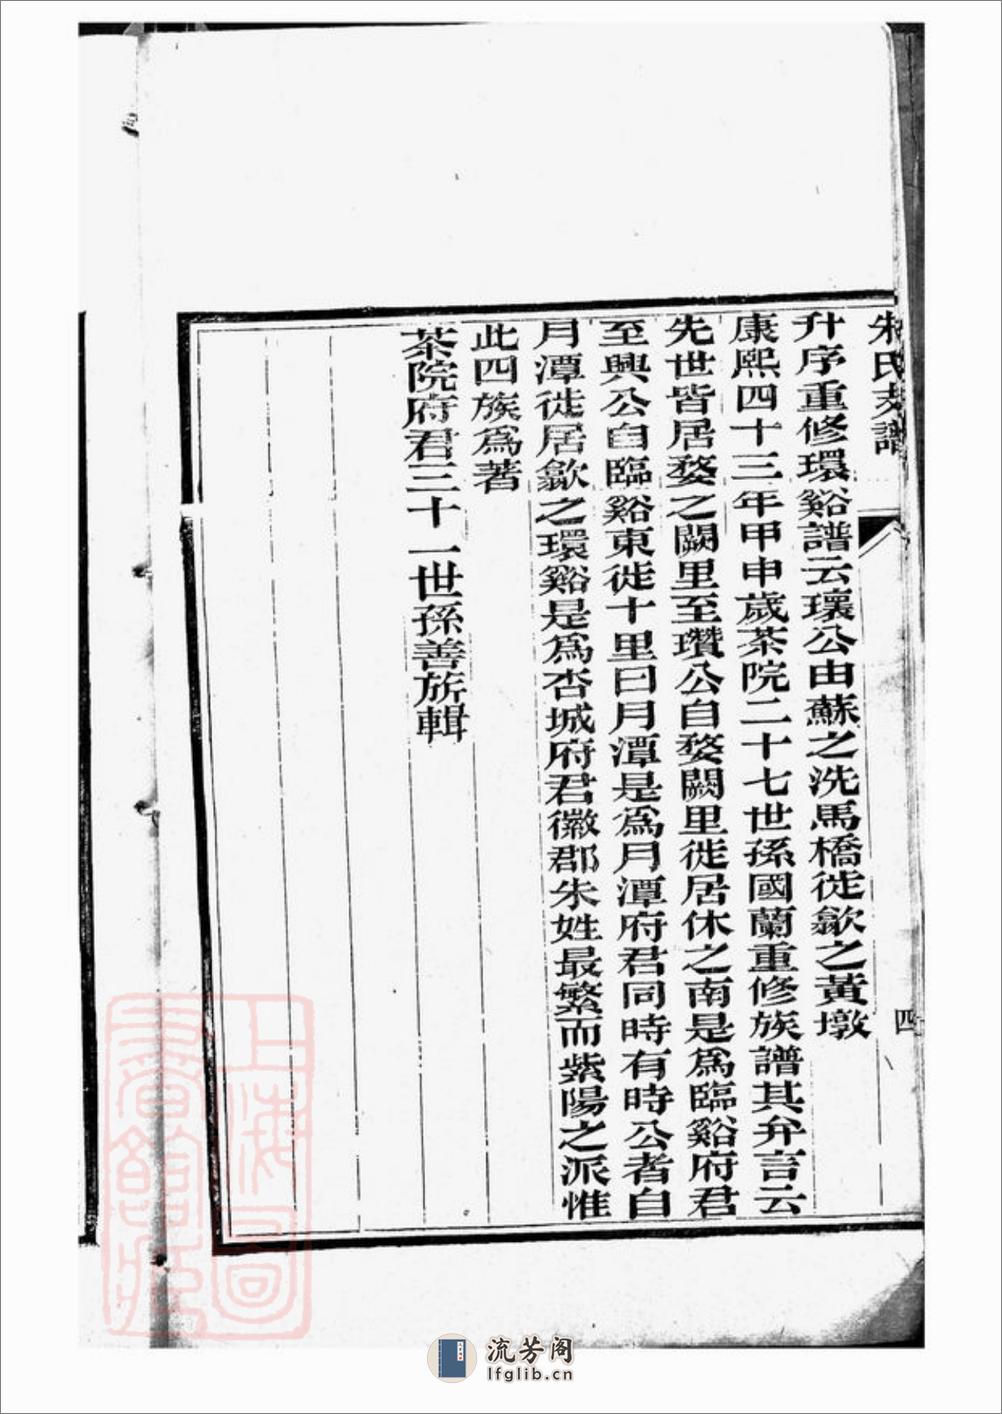 朱氏支譜
四
升序重修環谿譜云瓌公由蘇之洗馬橋徙歙之黃墩
康熙四十三年甲申歲茶院二十七世孫國蘭重修族譜其弁言云
先世皆居婺之闕里至瓚公自婺闕里徙居休之南是爲臨谿府君
至興公自臨谿東徙十里曰月潭是爲月潭府君同時有時公者自
月潭徙居歙之環谿是爲杏城府君徽郡朱姓最繁而紫陽之派惟
此四族爲著
茶院府君三十一世孫善旂輯
上海圖書館藏
流芳阁
lfglib.cn